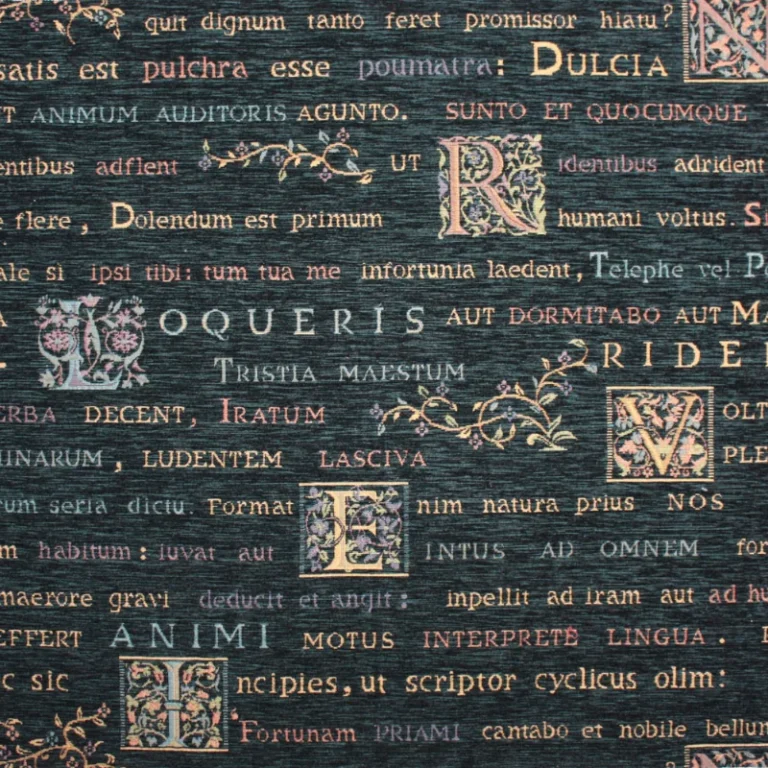 quit dignum tanto feret promissor hiatu?
satis est pulchra esse poumatra: DULCIA N
T ANIMUM AUDITORIS AGUNTO. SUNTO ET QUOCUMQUE
entibus adflent UT Ridentibus adrident
flere, Dolendum est primum humani voltus. S
ale si ipsi tibi: tum tua me infortunia laedent, Telephe vel P
LOQUERIS AUT DORMITABO AUT MA
TRISTIA MAESTUM RIDE
ERBA DECENT, IRATUM VOLT
INARUM, LUDENTEM LASCIVA PLE
rum seria dictu. Format Enim natura prius NOS
m habitum: iuvat aut INTUS AD OMNEM for
maerore gravi deducit et angit: inpellit ad iram aut ad hu
EFFERT ANIMI MOTUS INTERPRETE LINGUA.
c sic Incipies, ut scriptor cyclicus olim:
"Fortunam PRIAMI cantabo et nobile bellum